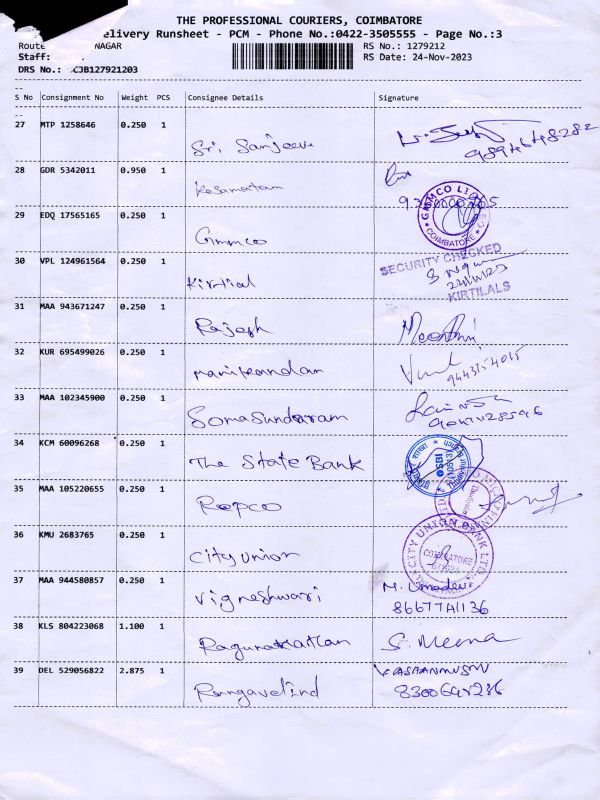 THE PROFESSIONAL COURIERS, COIMBATORE
elivery Runsheet - PCM - Phone No.:0422-3505555 - Page No.:3
Route NAGAR RS No.: 1279212
Staff: RS Date: 24-Nov-2023
DRS No.: CJB127921203
S No Consignment No Weight PCS Consignee Details Signature
27 MTP 1258646 0.250 1 Sri Sanjeev
9894648282
28 GDR 5342011 0.950 1
29 EDQ 17565165 0.250 1 Gmmco
GMMCO LIMITED COIMBATORE
30 VPL 124961564 0.250 1 Kirtilal
SECURITY CHECKED
KIRTILALS
31 MAA 943671247 0.250 1 Rajesh
32 KUR 695499026 0.250 1 Manikandan
33 MAA 102345900 0.250 1 Somasundaram
34 KCM 60096268 0.250 1 The State Bank
SBI
35 MAA 105220655 0.250 1 Repco
36 KMU 2683765 0.250 1 City Union
CITY UNION BANK LTD.
COIMBATORE
37 MAA 944580857 0.250 1 Vigneshwari
M. Umadevi
38 KLS 804223068 1.100 1 S. Meena
39 DEL 529056822 2.875 1